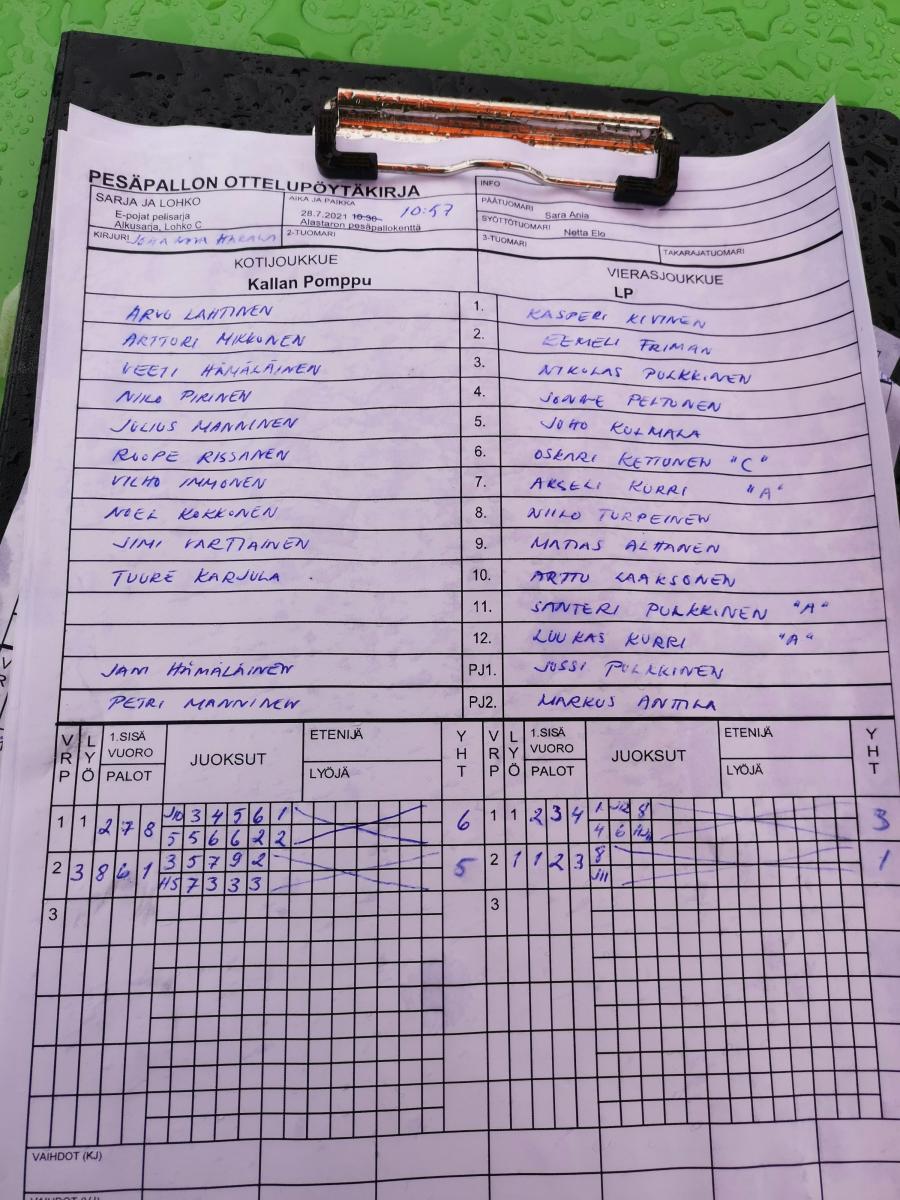 PESÄPALLON OTTELUPÖYTÄKIRJA
INFO
SARJA JA LOHKO
E-pojat pelisarja
Alkusarja, Lohko C
AIKA JA PAIKKA
28.7.2021 10.30 10:57
Alastaron pesäpallokenttä
PÄÄTUOMARI
Sara Ania
SYÖTTÖTUOMARI
Netta Elo
KIRJURI
2-TUOMARI
3-TUOMARI
TAKARAJATUOMARI
KOTIJOUKKUE
Kallan Pomppu
VIERASJOUKKUE
LP
ARVO LAHTINEN 1. KASPERI KIVINEN
ARTTURI MIKKONEN 2. EEMELI FRIMAN
VEETI HÄMÄLÄINEN 3. NIKOLAS PULKKINEN
NIILO PIRINEN 4. JONNE PELTONEN
JULIUS MANNINEN 5. JUHO KULMALA
ROOPE RISSANEN 6. OSKARI KETTUNEN "C"
VILHO IMMONEN 7. AKSELI KURRI "A"
NOEL KOKKONEN 8. NIILO TURPEINEN
JIMI VARTIAINEN 9. MATIAS ALHANEN
TUURE KARJULA 10. ARTTU LAAKSONEN
11. SANTERI PULKKINEN "A"
12. LUUKAS KURRI "A"
JANI HÄMÄLÄINEN PJ1. JUSSI PULKKINEN
PETRI MANNINEN PJ2. MARKUS ANTTILA
VRP LYÖ 1.SISÄ VUORO PALOT JUOKSUT ETENIJÄ LYÖJÄ YHT VRP LYÖ 1.SISÄ VUORO PALOT JUOKSUT ETENIJÄ LYÖJÄ YHT
1 1 2 7 8 J10 3 4 5 6 1 6 1 1 2 3 4 1 J12 8 3
5 5 6 6 2 2 4 6
2 3 8 6 1 3 5 7 9 2 5 2 1 1 2 3 8 1
H5 7 3 3 3 J11
3 3
VAIHDOT (KJ)